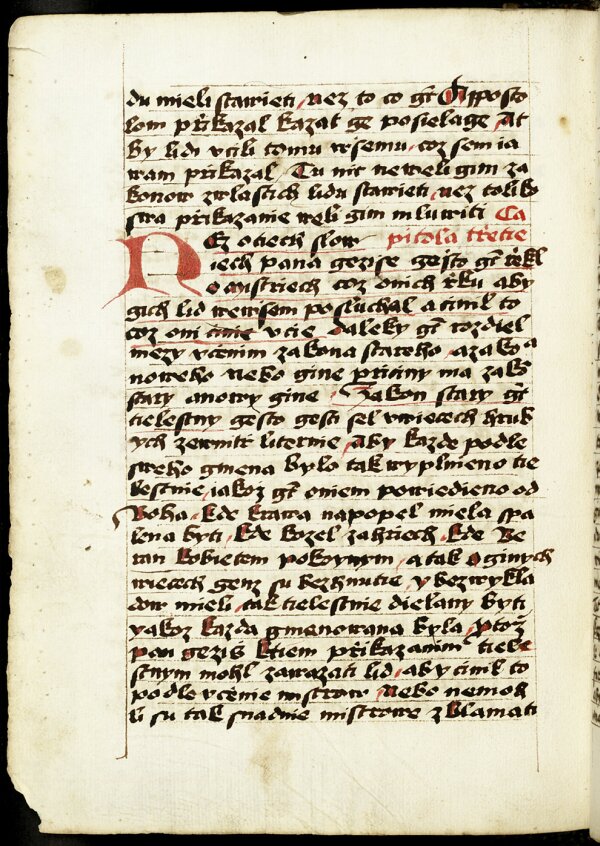 du mieli stawieti, nez to co gt Appossto
lom przikazal kazat ge posielage At
by lidi vcili tomu wssemu, coz sem ia
wam przikazal, Tu nic neweli gim za
konow zwlasstich lidu stawieti, nez toliko
swa przikazanie weli gim mluwiti Ca
Nez o tiech slow pitola trzetie
iech pana gezisse gessto gt rzekl
o mistriech coz onich rzku aby
gich lid wewssem posluchal a cinil to
coz oni vcie daleky gt rozdiel
mezy vcenim zakona stareho, a zakona
noweho nebo gine prziciny ma zakon
stary a nowy gine, Zakon stary gt
tielestny gessto gest sel v wiecech hrub
ych zewnitr liternie, Aby kazde podle
sweho gmena bylo tak wyplnieno tie
lestnie, iakoz gt oniem powiedieno od
Boha, kde krawa na popel miela spa
lena byti, kde kozel za hriech, kde Be
ran kobietem pokoynym, a tak o ginych
wiecech genz su bez hnutie, y bez wykla
dow mieli, tak tielestnie dielany byti
yakoz kazda gmenowana byla, Protoz
pan gezis ktiem przikazanim tiele
stnym mohl zawazati lid, aby cinil to
podle vcenie mistrow, nebo nemoh
li su tak snadnie mistrowe zklamati